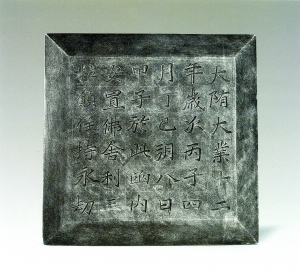 大隋大業十二
年歲次丙子四
月丁巳朔八日
甲子於此函内
安置佛舍利三
粒願住持永劫